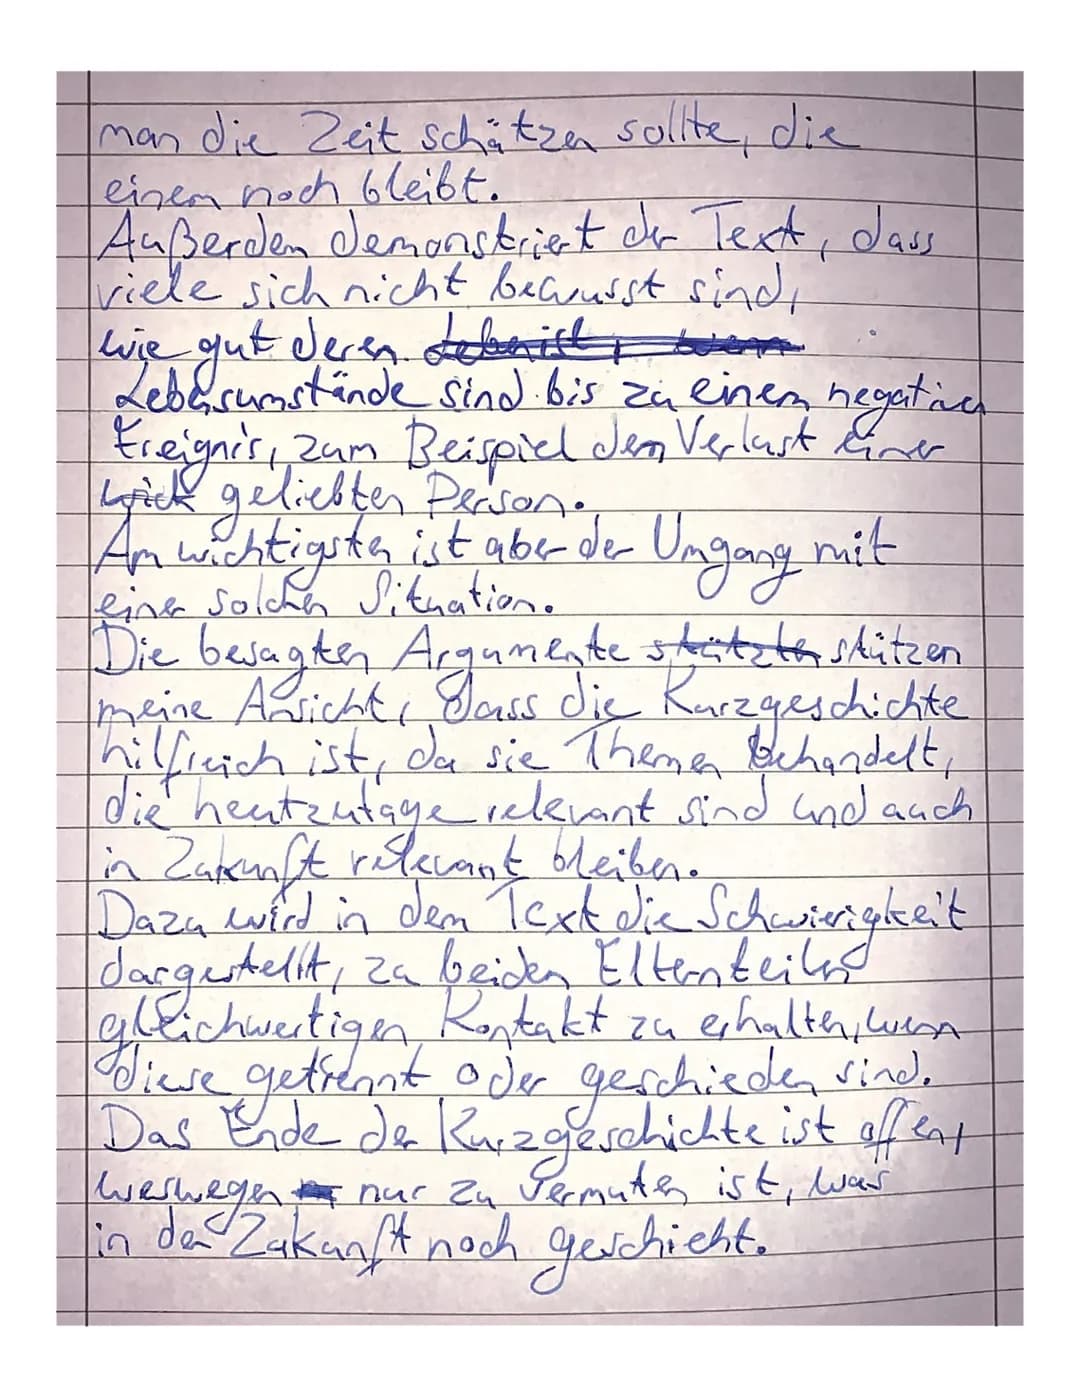 man die Zeit schätzen sollte, die
einem noch bleibt.
Außerdem demonstriert der Text, dass
viele sich nicht bewusst sind,
wie gut deren Leben ist, wenn
Lebensumstände sind bis zu einem negativen
Ereignis, zum Beispiel dem Verlust einer
geliebten Person.
Am wichtigsten ist aber der Umgang mit
einer solchen Situation.
Die besagten Argumente stützten stützen
meine Ansicht, dass die Kurzgeschichte
hilfreich ist, da sie Themen behandelt,
die heutzutage relevant sind und auch
in Zukunft relevant bleiben.
Dazu wird in dem Text die Schwierigkeit
dargestellt, zu beiden Elternteilen
gleichwertigen Kontakt zu erhalten, wenn
diese getrennt oder geschieden sind.
Das Ende der Kurzgeschichte ist offen,
weswegen nur zu vermuten ist, was
in der Zukunft noch geschieht.